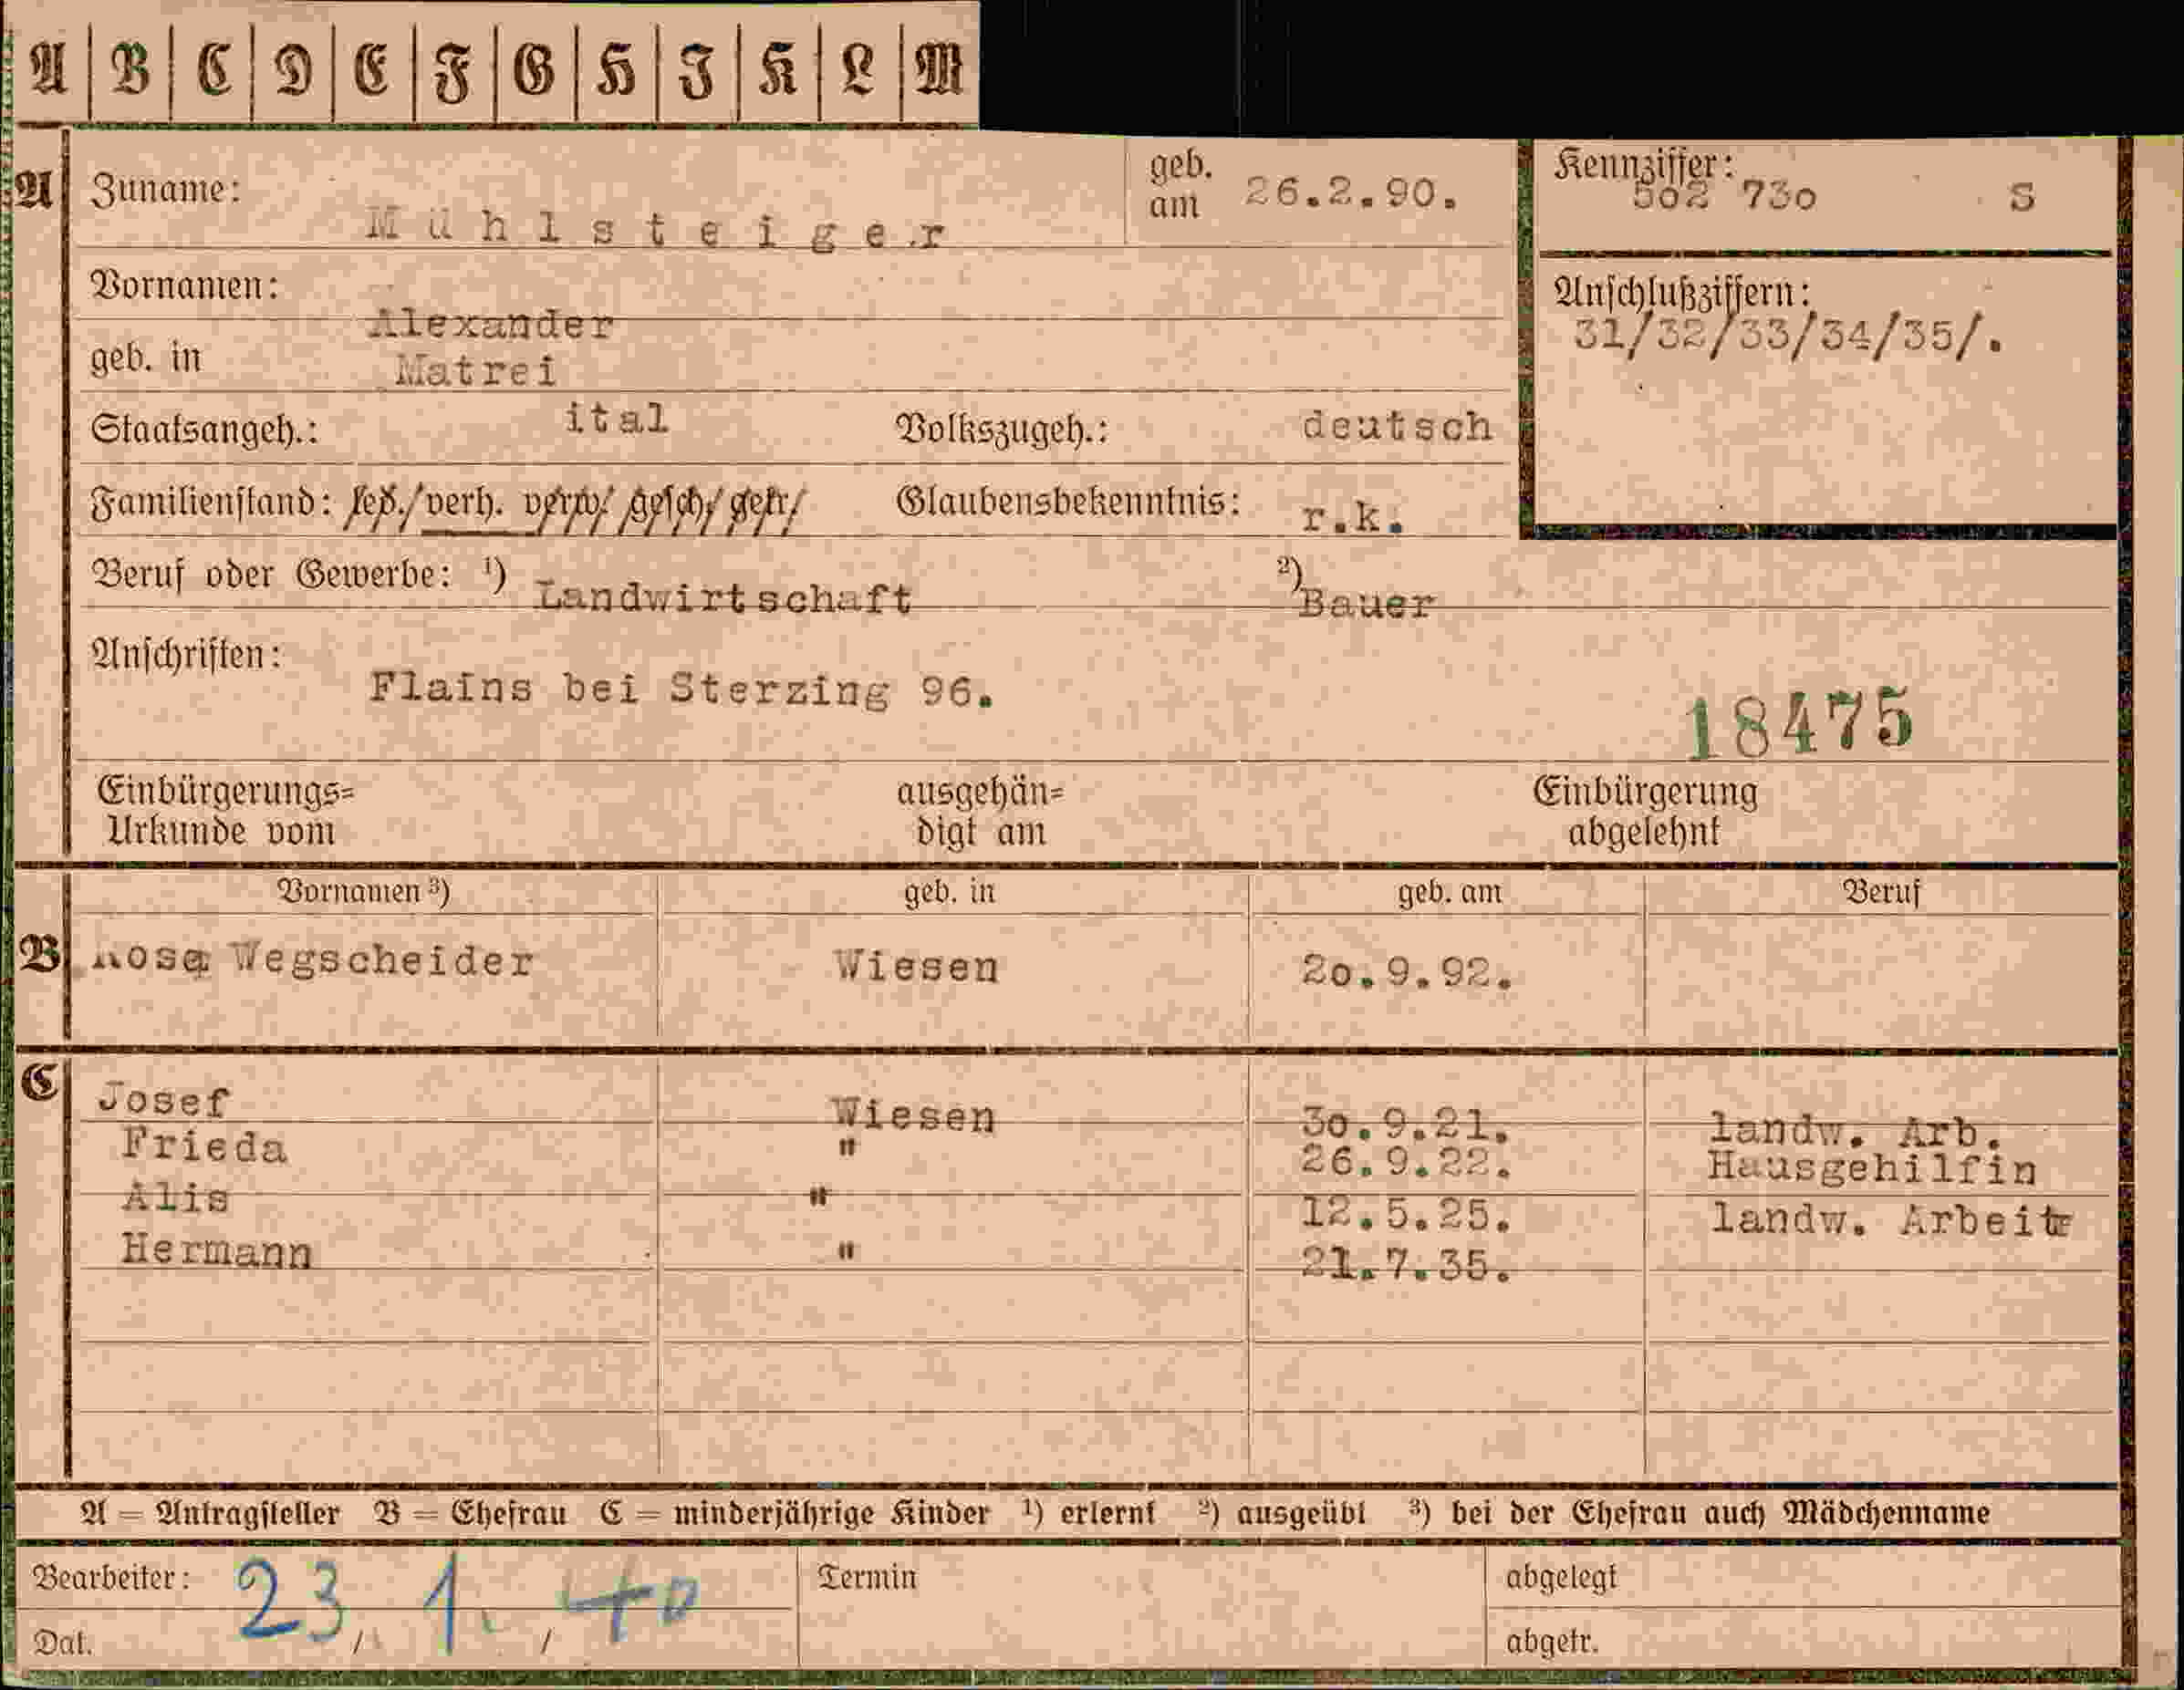 A B C D E F G H J K L M
A Zuname: Mühlsteiger geb. am 26.2.90. Kennziffer: 502 730 S
Vornamen: Alexander Anschlußziffern: 31/32/33/34/35/.
geb. in Matrei
Staatsangeh.: ital Volkszugeh.: deutsch
Familienstand: led./verh. verw/ gesch/ getr/ Glaubensbekenntnis: r.k.
Beruf oder Gewerbe: 1) Landwirtschaft 2) Bauer
Anschriften: Flains bei Sterzing 96.
18475
Einbürgerungs= ausgehän= Einbürgerung
Urkunde vom digt am abgelehnt
Vornamen 3) geb. in geb. am Beruf
B Rosa Wegscheider Wiesen 20.9.92.
C Josef Wiesen 30.9.21. landw. Arb.
Frieda " 26.9.22. Hausgehilfin
Alis " 12.5.25. landw. Arbeitr
Hermann " 21.7.35.
A = Antragsteller B = Ehefrau C = minderjährige Kinder 1) erlernt 2) ausgeübt 3) bei der Ehefrau auch Mädchenname
Bearbeiter: 23. 1. 40 Termin abgelegt
Dat. / / abgetr.